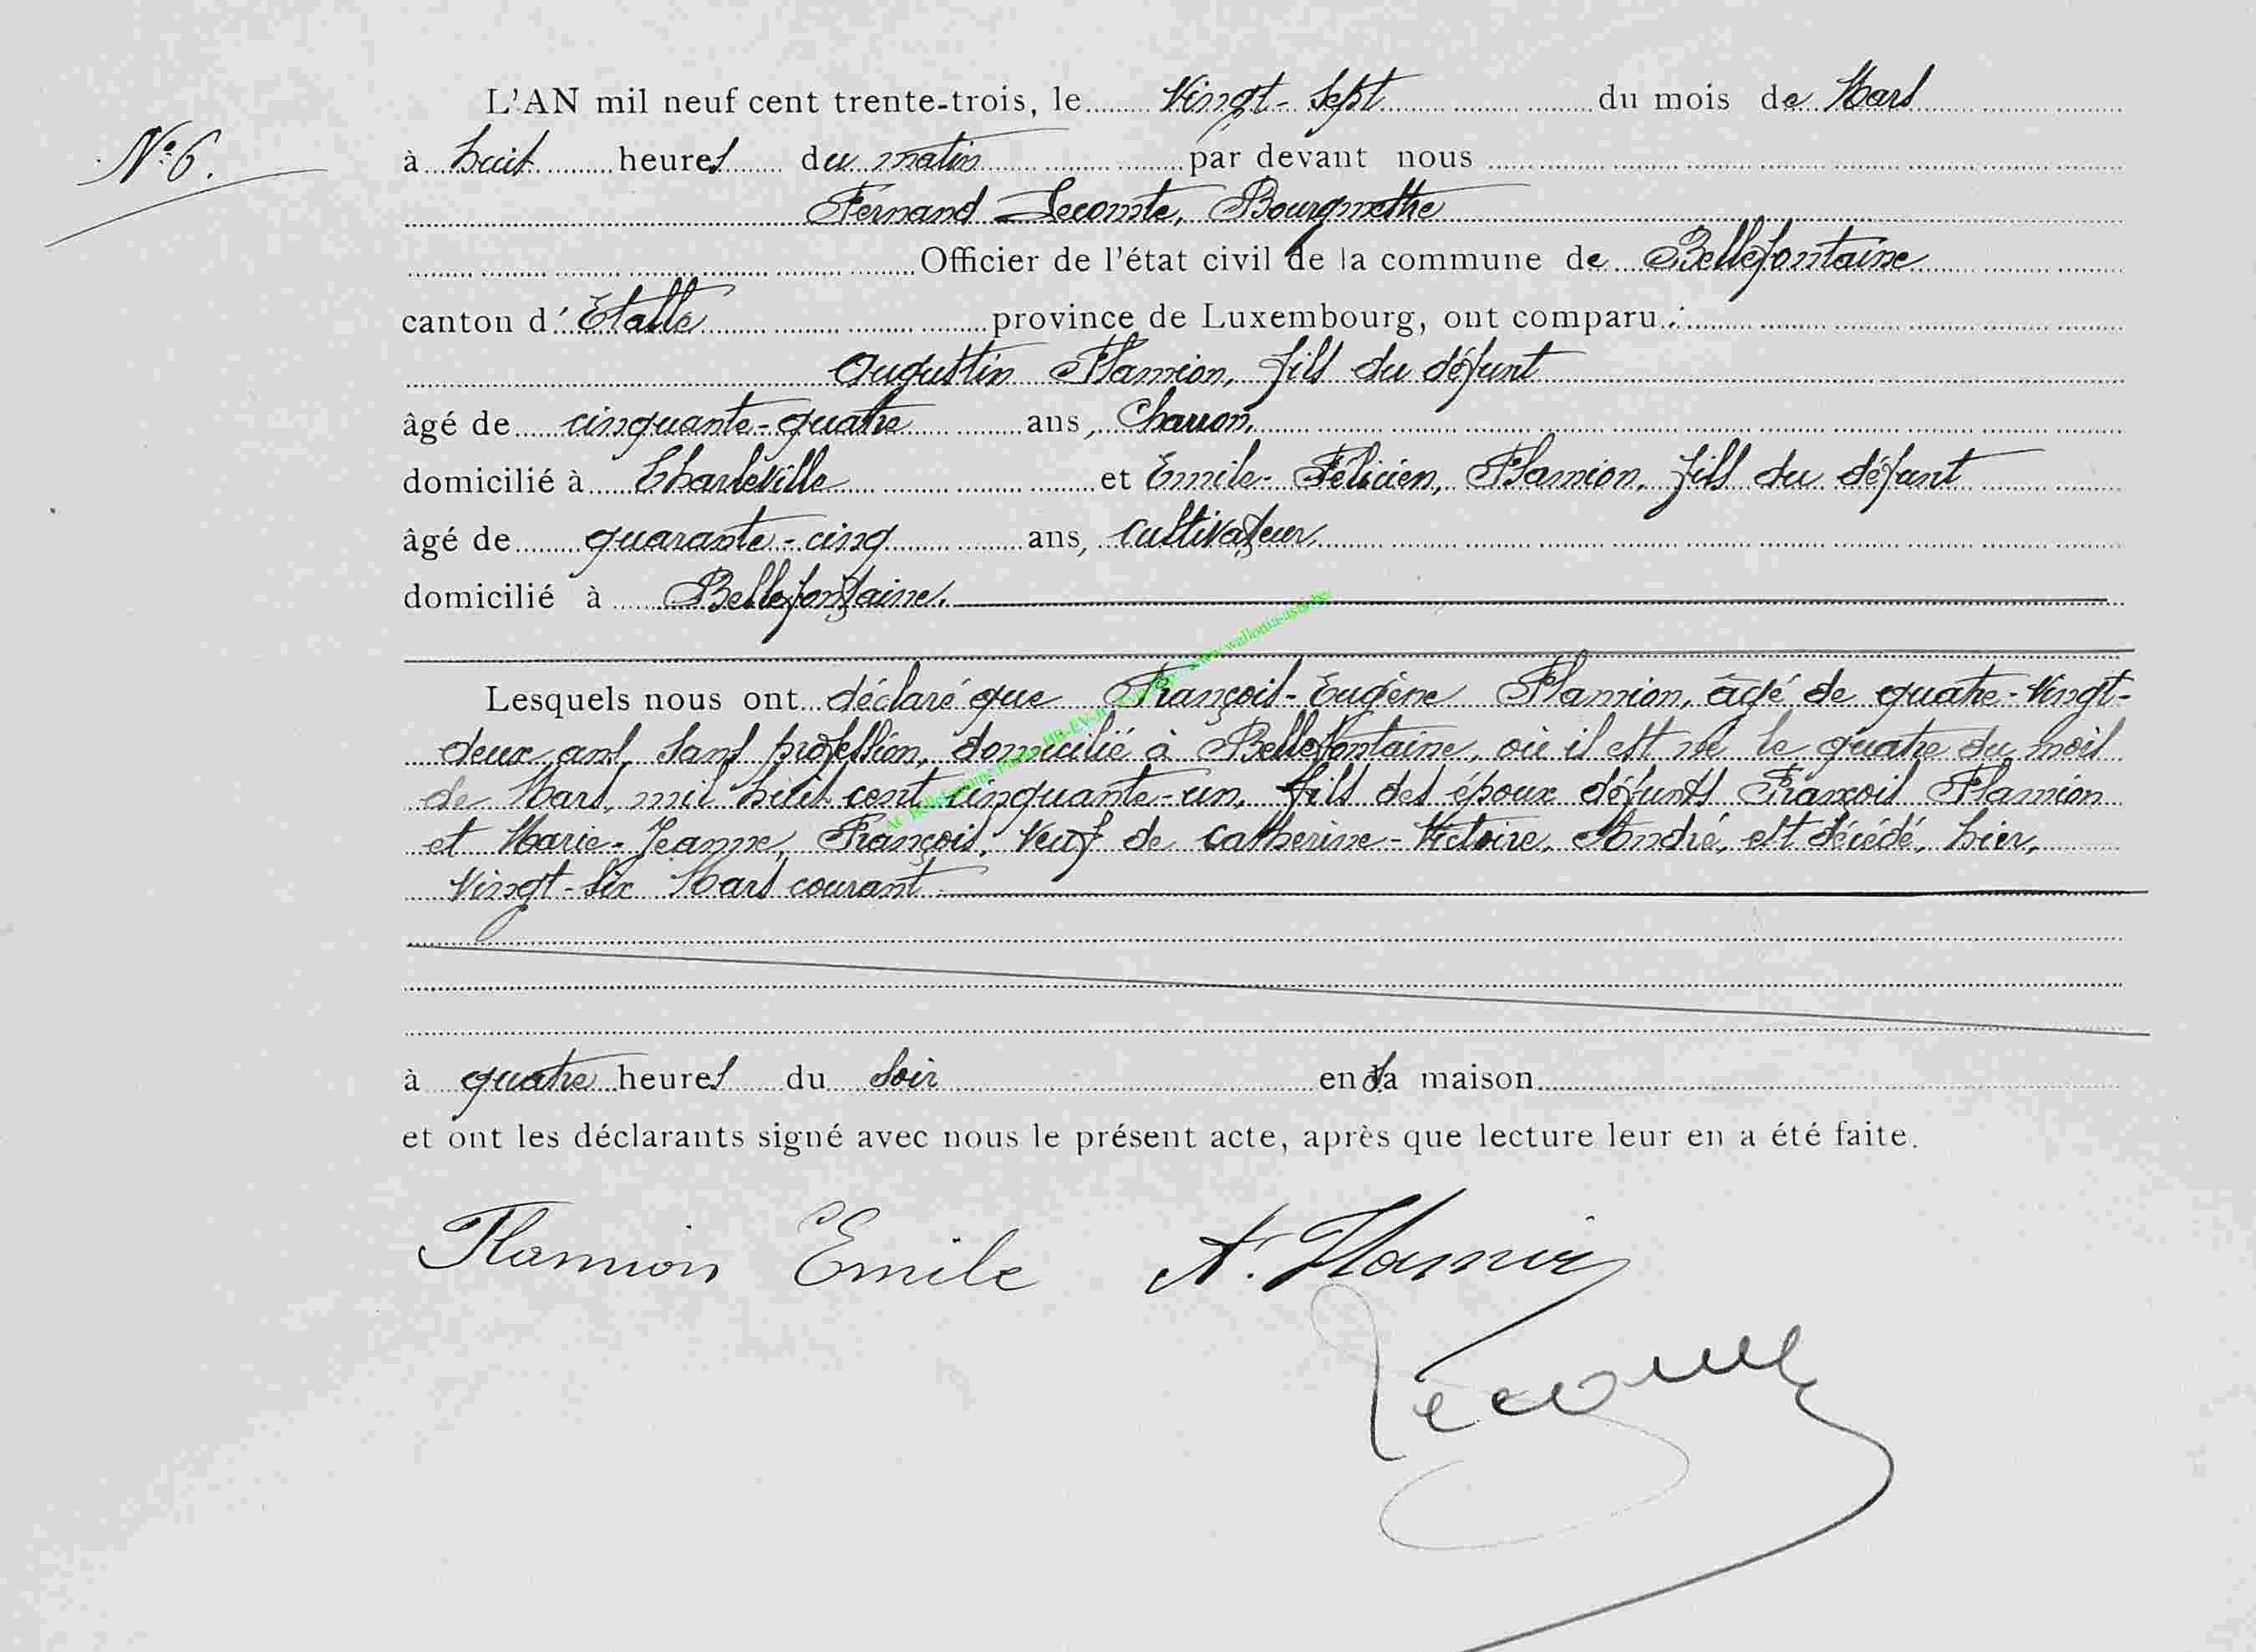 L'AN mil neuf cent trente-trois, le Vingt-Sept du mois de Mars
N° 6. à huit heures du matin par devant nous
Fernand Lecomte, Bourgmettre
Officier de l'état civil de la commune de Bellefontaine
canton d'Etalle province de Luxembourg, ont comparu :
Augustin Flamion, fils du défunt
âgé de cinquante-quatre ans, Charron,
domicilié à Charleville et Emile-Félicien, Flamion, fils du défunt
âgé de quarante-cinq ans, cultivateur,
domicilié à Bellefontaine.
Lesquels nous ont déclaré que François-Eugène Flamion, âgé de quatre-vingt-
deux ans, sans profession, domicilié à Bellefontaine, où il est né le quatre du mois
de Mars, mil huit cent cinquante-un, fils des époux défunts François Flamion
et Marie-Jeanne, François, Veuf de Catherine-Victoire, André, est décédé, hier,
Vingt-six Mars courant
à quatre heures du soir en sa maison
et ont les déclarants signé avec nous le présent acte, après que lecture leur en a été faite.
Flamion Emile A. Flamion
Lecomte